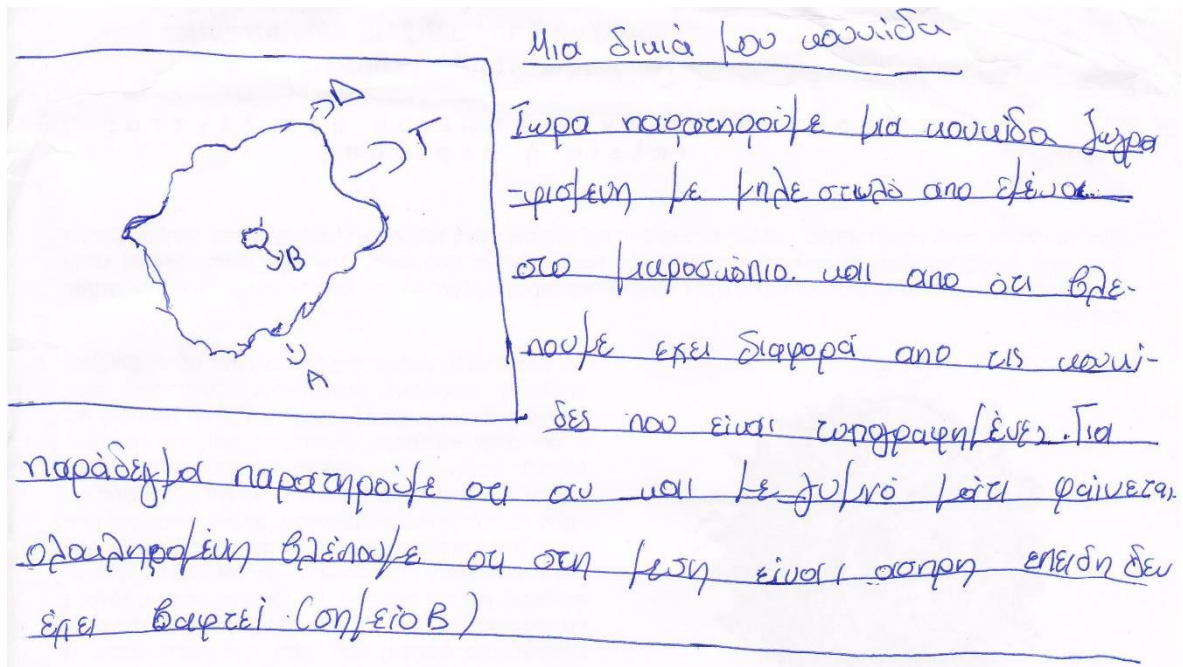 Μια δικιά μου κουκίδα
Τώρα παρατηρούμε μια κουκίδα ζωγρα
-φισμενη με μπλε στυλό απο εμένα
στο μικροσκόπιο. και απο ότι βλε-
πουμε εχει διαφορά απο τις κουκί-
δες που είναι τυπογραφημένες. Για
παράδειγμα παρατηρούμε οτι αν και με γυμνό μάτι φαίνεται
ολοκληρομενη βλέπουμε οτι στη μεση είναι ασπρη επειδη δεν
έχει βαφτεί (σημείο Β)
Δ
Γ
Β
Α